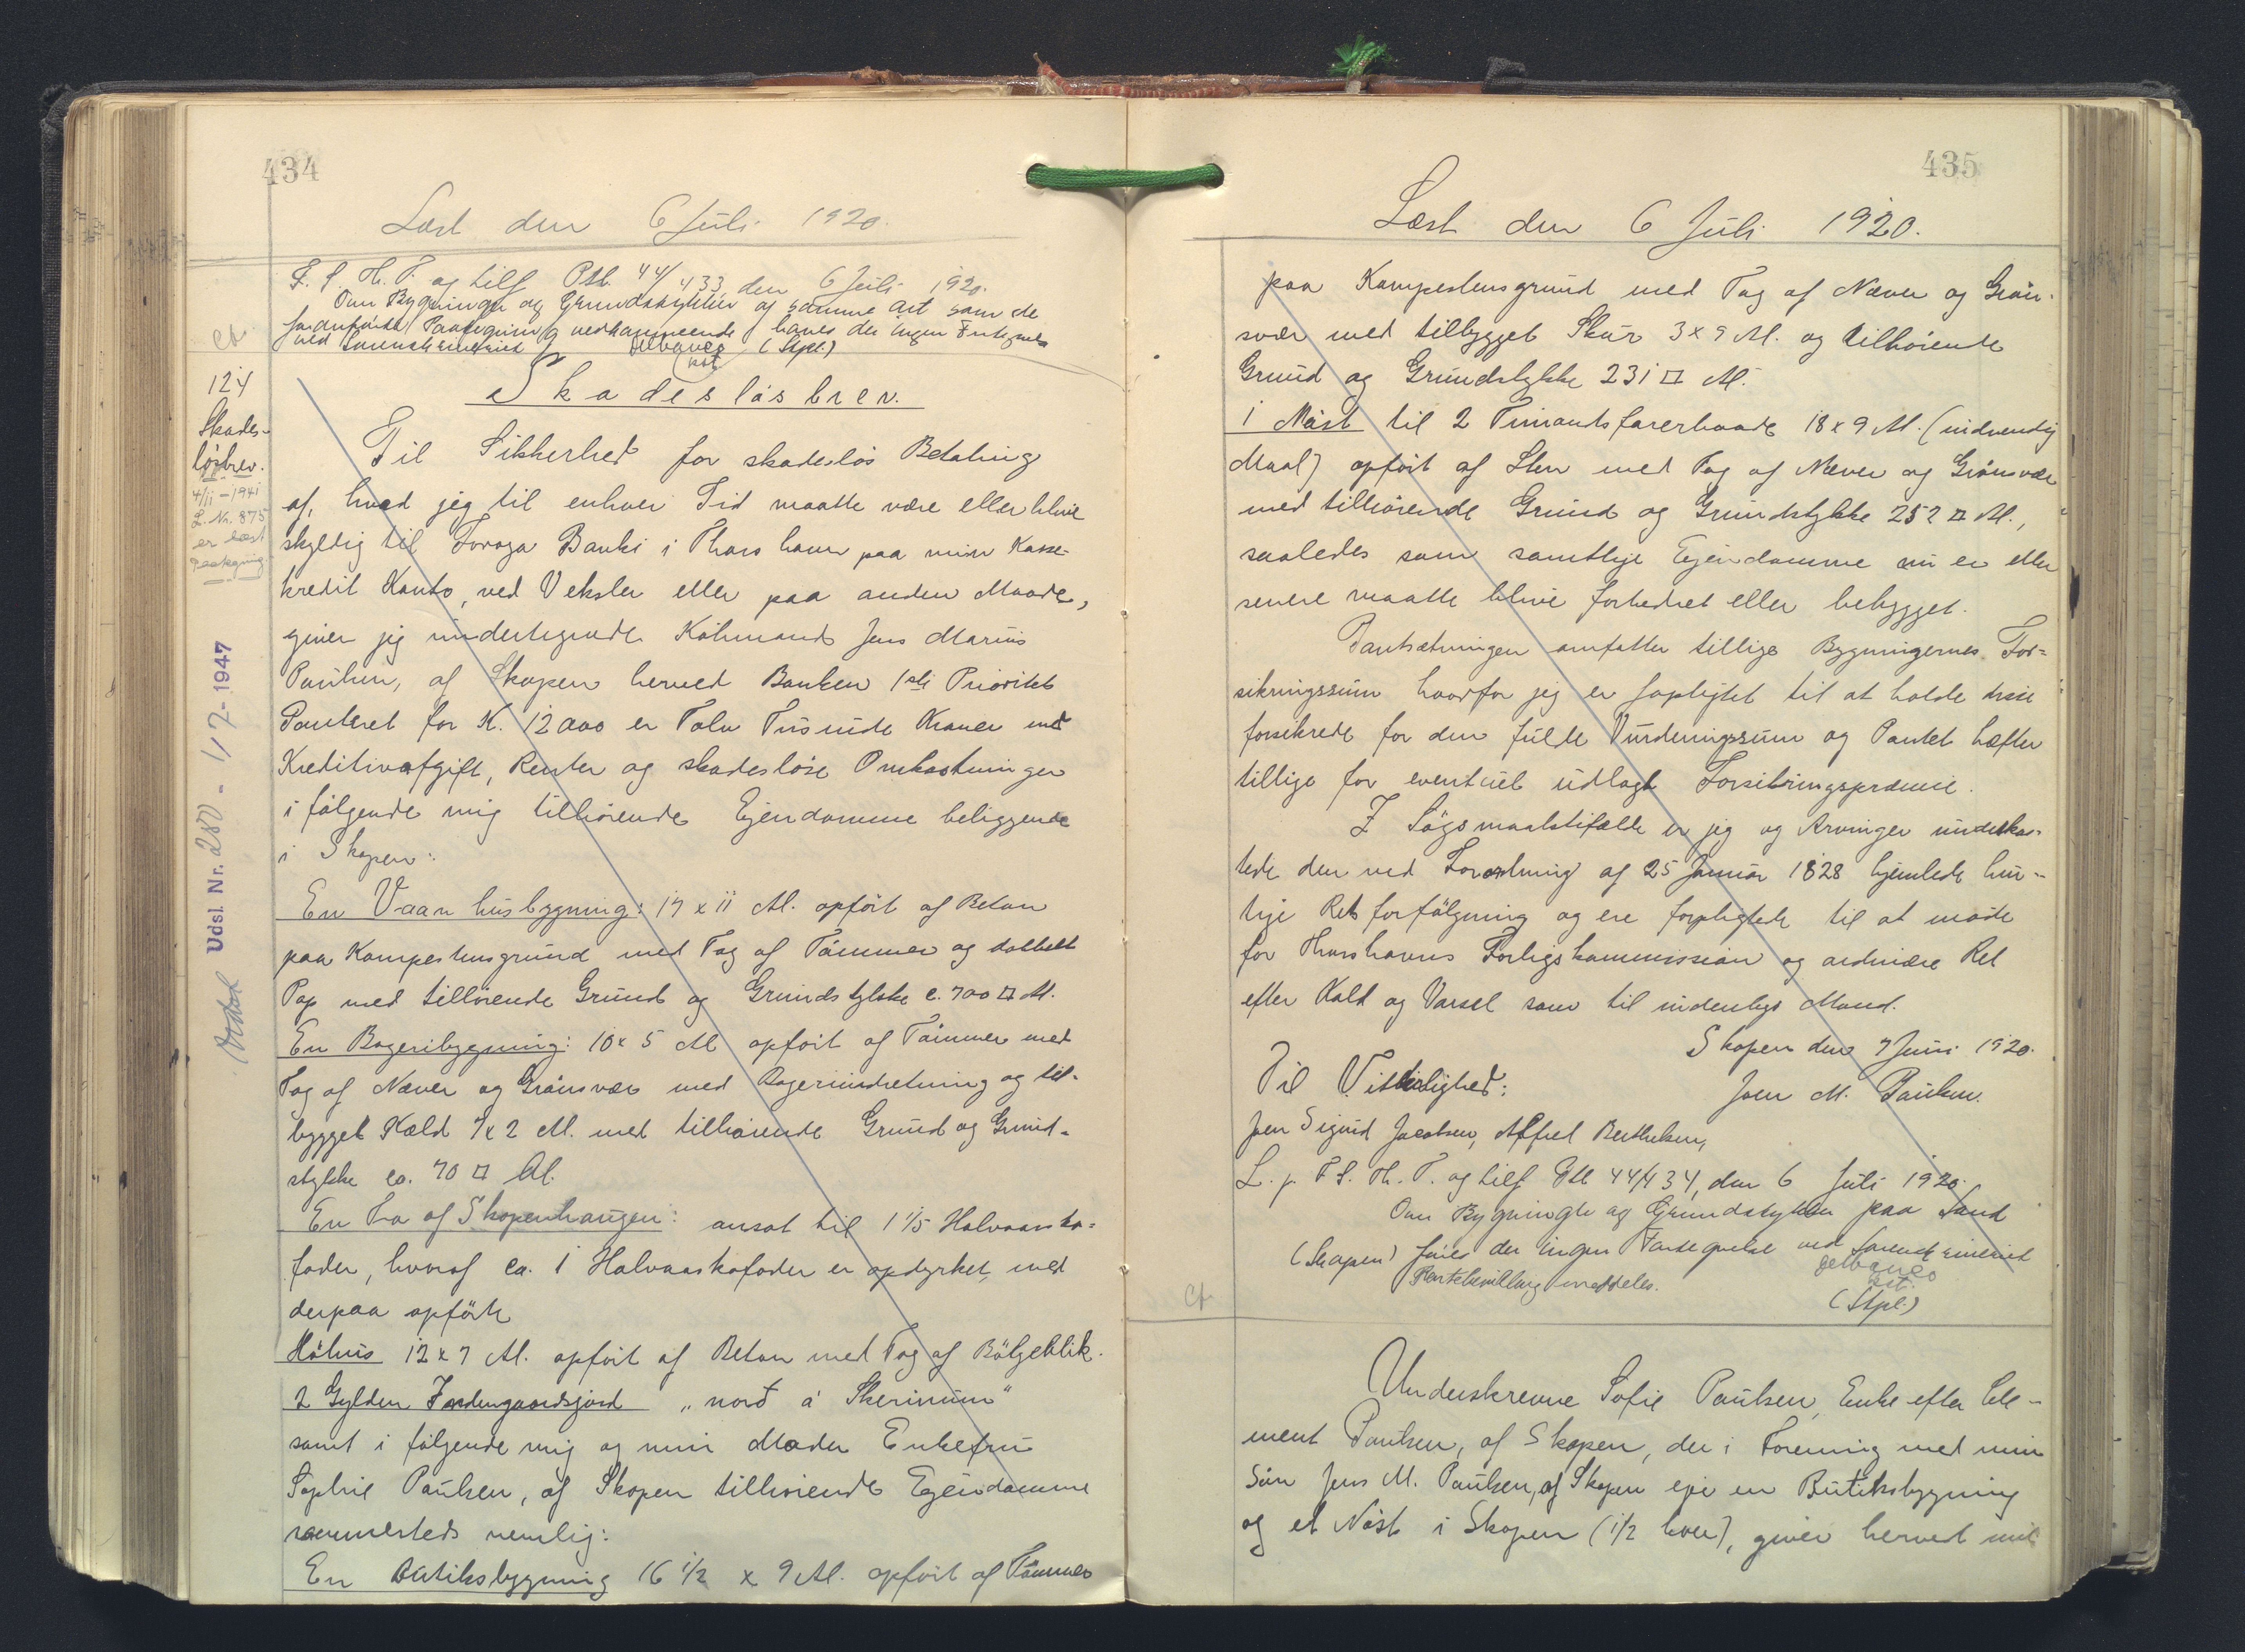 434
Læst den 6 Juli 1920.
F. S. Th. T. og tilf Ptb. 44/433 den 6 Juli 1920.
Om Bygninger og Grundstykker af samme Art som de
foranførte Paategning vedkommende haves der ingen Fortegnelse
ved Sorenskriveriet (Stpl.)
cf
124
Skades-
løsbrev.
4/11-1941
L. Nr. 875
er læst
Paategning
Udsl. Nr. 280 - 1/7-1947
Skadesløsbrev.
Til Sikkerhed for skadesløs Betaling
af, hvad jeg til enhver Tid maatte være eller blive
skyldig til Føroya Banki i Thorshavn paa min Kasse-
kredit Konto, ved Veksler eller paa anden Maade,
giver jeg undertegnede Købmand Jens Marius
Paulsen, af Skopen herved Banken 1ste Prioritets
Panteret for K. 12000 er Tolv Tusinde Kroner med
Kreditivafgift, Renter og skadesløse Omkostninger
i følgende mig tilhørende Ejendomme beliggende
i Skopen:
En Vaanhusbygning: 17 x 11 Al. opført af Beton
paa Kampestensgrund med Tag af Tømmer og dobbelt
Pap med tilhørende Grund og Grundstykke c. 700 □ Al.
En Bageribygning: 10 x 5 Al opført af Tømmer med
Tag af Næver og Grønsvær med Bageriindretning og til-
bygget Kæld 7x2 Al. med tilhørende Grund og Grund-
stykke ca. 70 □ Al.
En Tra af Skopenhaugen: ansat til 1 1/5 Halvaarsko-
foder, hvoraf ca. 1 Halvaarskofoder er opdyrket, med
derpaa opførte
Høhus 12 x 7 Al. opført af Beton med Tag af Bølgeblik.
2 Gylden Indengaardsjord „norð á Skerinum"
samt i følgende mig og min Moder Enkefru
Sophie Paulsen, af Skopen tilhørende Ejendomme
sammesteds nemlig:
En Butiksbygning 16 1/2 x 9 Al. opført af Tømmer
435
Læst den 6 Juli 1920.
paa Kampestensgrund med Tag af Næver og Grøn-
svær med tilbygget Skur 3 x 9 Al. og tilhørende
Grund og Grundstykke 231 □ Al.
1 Nøst til 2 Timandsfarerbaade 18 x 9 Al. (indvendig
Maal) opført af Sten med Tag af Næver og Grønsvær
med tilhørende Grund og Grundstykke 252 □ Al.,
saaledes som samtlige Ejendomme nu er eller
senere maatte blive forbedret eller bebygget.
Pantsætningen omfatter tillige Bygningernes For-
sikringssum hvorfor jeg er forpligtet til at holde disse
forsikrede for den fulde Vurderingssum og Pantet hæfter
tillige for eventuel udlagt Forsikringspræmie.
I Søgsmaalstilfælde er jeg og Arvinger underka-
stede den ved Forordning af 25 Januar 1828 hjemlede hur-
tige Retsforfølgning og ere forpligtede til at møde
for Thorshavns Forligskommission og ordinære Ret
efter Kald og Varsel som til indenbys Mand.
Skopen den 7 Juni 1920.
Til Vitterlighed: Jens M. Paulsen.
Joen Sigurd Jacobsen, Alfred Berthelsen,
L. p. F. S. Th. T. og tilf Ptb 44/434, den 6 Juli 1920.
Om Bygninger og Grundstykker paa Sand
(Skopen) føres der ingen Fortegnelse ved Sorenskriveriet
Pantebevilling meddeles.
(Stpl.)
cf
Underskrevne Sofie Paulsen, Enke efter Cle-
ment Paulsen, af Skopen, der i Forening med min
Søn Jens M. Paulsen, af Skopen eje en Butiksbygning
og et Nøst i Skopen (1/2 hver), giver herved mit